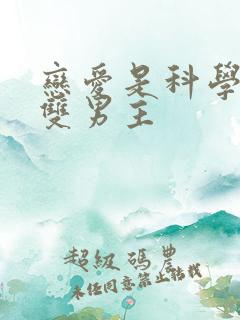 戀愛是科學
雙男主
超級碼農
未經同意禁止轉載